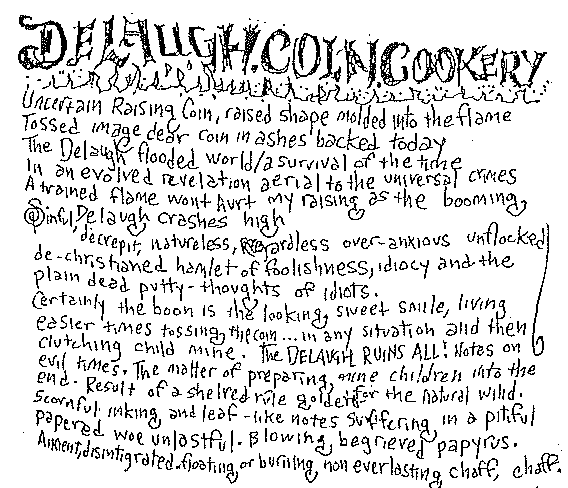 DELAUGH.COIN.COOKERY
Uncertain Raising Coin, raised shape molded into the flame
Tossed image dear coin in ashes backed today
The Delaugh flooded world/a survival of the time
In an evolved revelation aerial to the universal crimes
A trained flame wont hurt my raising as the booming,
@Sinful, Delaugh crashes high
decrepit, natureless, Regardless over-anxious unflocked
de-christianed hamlet of foolishness, idiocy and the
plain dead putty-thoughts of idiots.
Certainly the boon is the looking, sweet smile, living
easier times tossing, the coin... in any situation and then
clutching child mine. The DELAUGH RUINS ALL! Notes on
evil times. The matter of preparing, mine children into the
end. Result of a shelved rule golden for the natural wind.
Scornful inking and leaf-like notes suffering in a pitiful
papered woe unlastful. Blowing, begrieved papyrus.
Ancient, disintigrated. floating, or burning, non everlasting chaff, chaff.